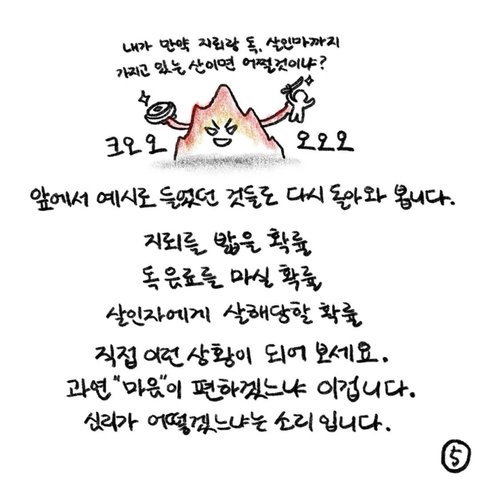 내가 만약 지뢰랑 독, 살인마까지
가지고 있는 산이면 어떨것이냐?
크오오
오오오
앞에서 예시로 들었던 것들로 다시 돌아와 봅니다.
지뢰를 밟을 확률
독음료를 마실 확률
살인자에게 살해당할 확률
직접 이런 상황이 되어 보세요.
과연 "마음"이 편하겠느냐 이겁니다.
심리가 어떻겠느냐는 소리입니다.
5